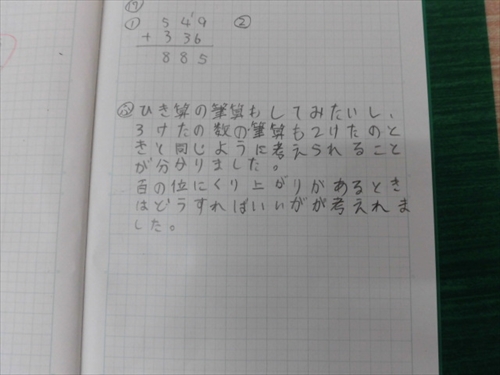 ⑰
① 549 ②
+ 336
885
ひき算の筆算もしてみたいし、
3けたの数の筆算も2けたのと
きと同じように考えられること
が分かりました。
百の位にくり上がりがあるとき
はどうすればいいがが考えれま
した。